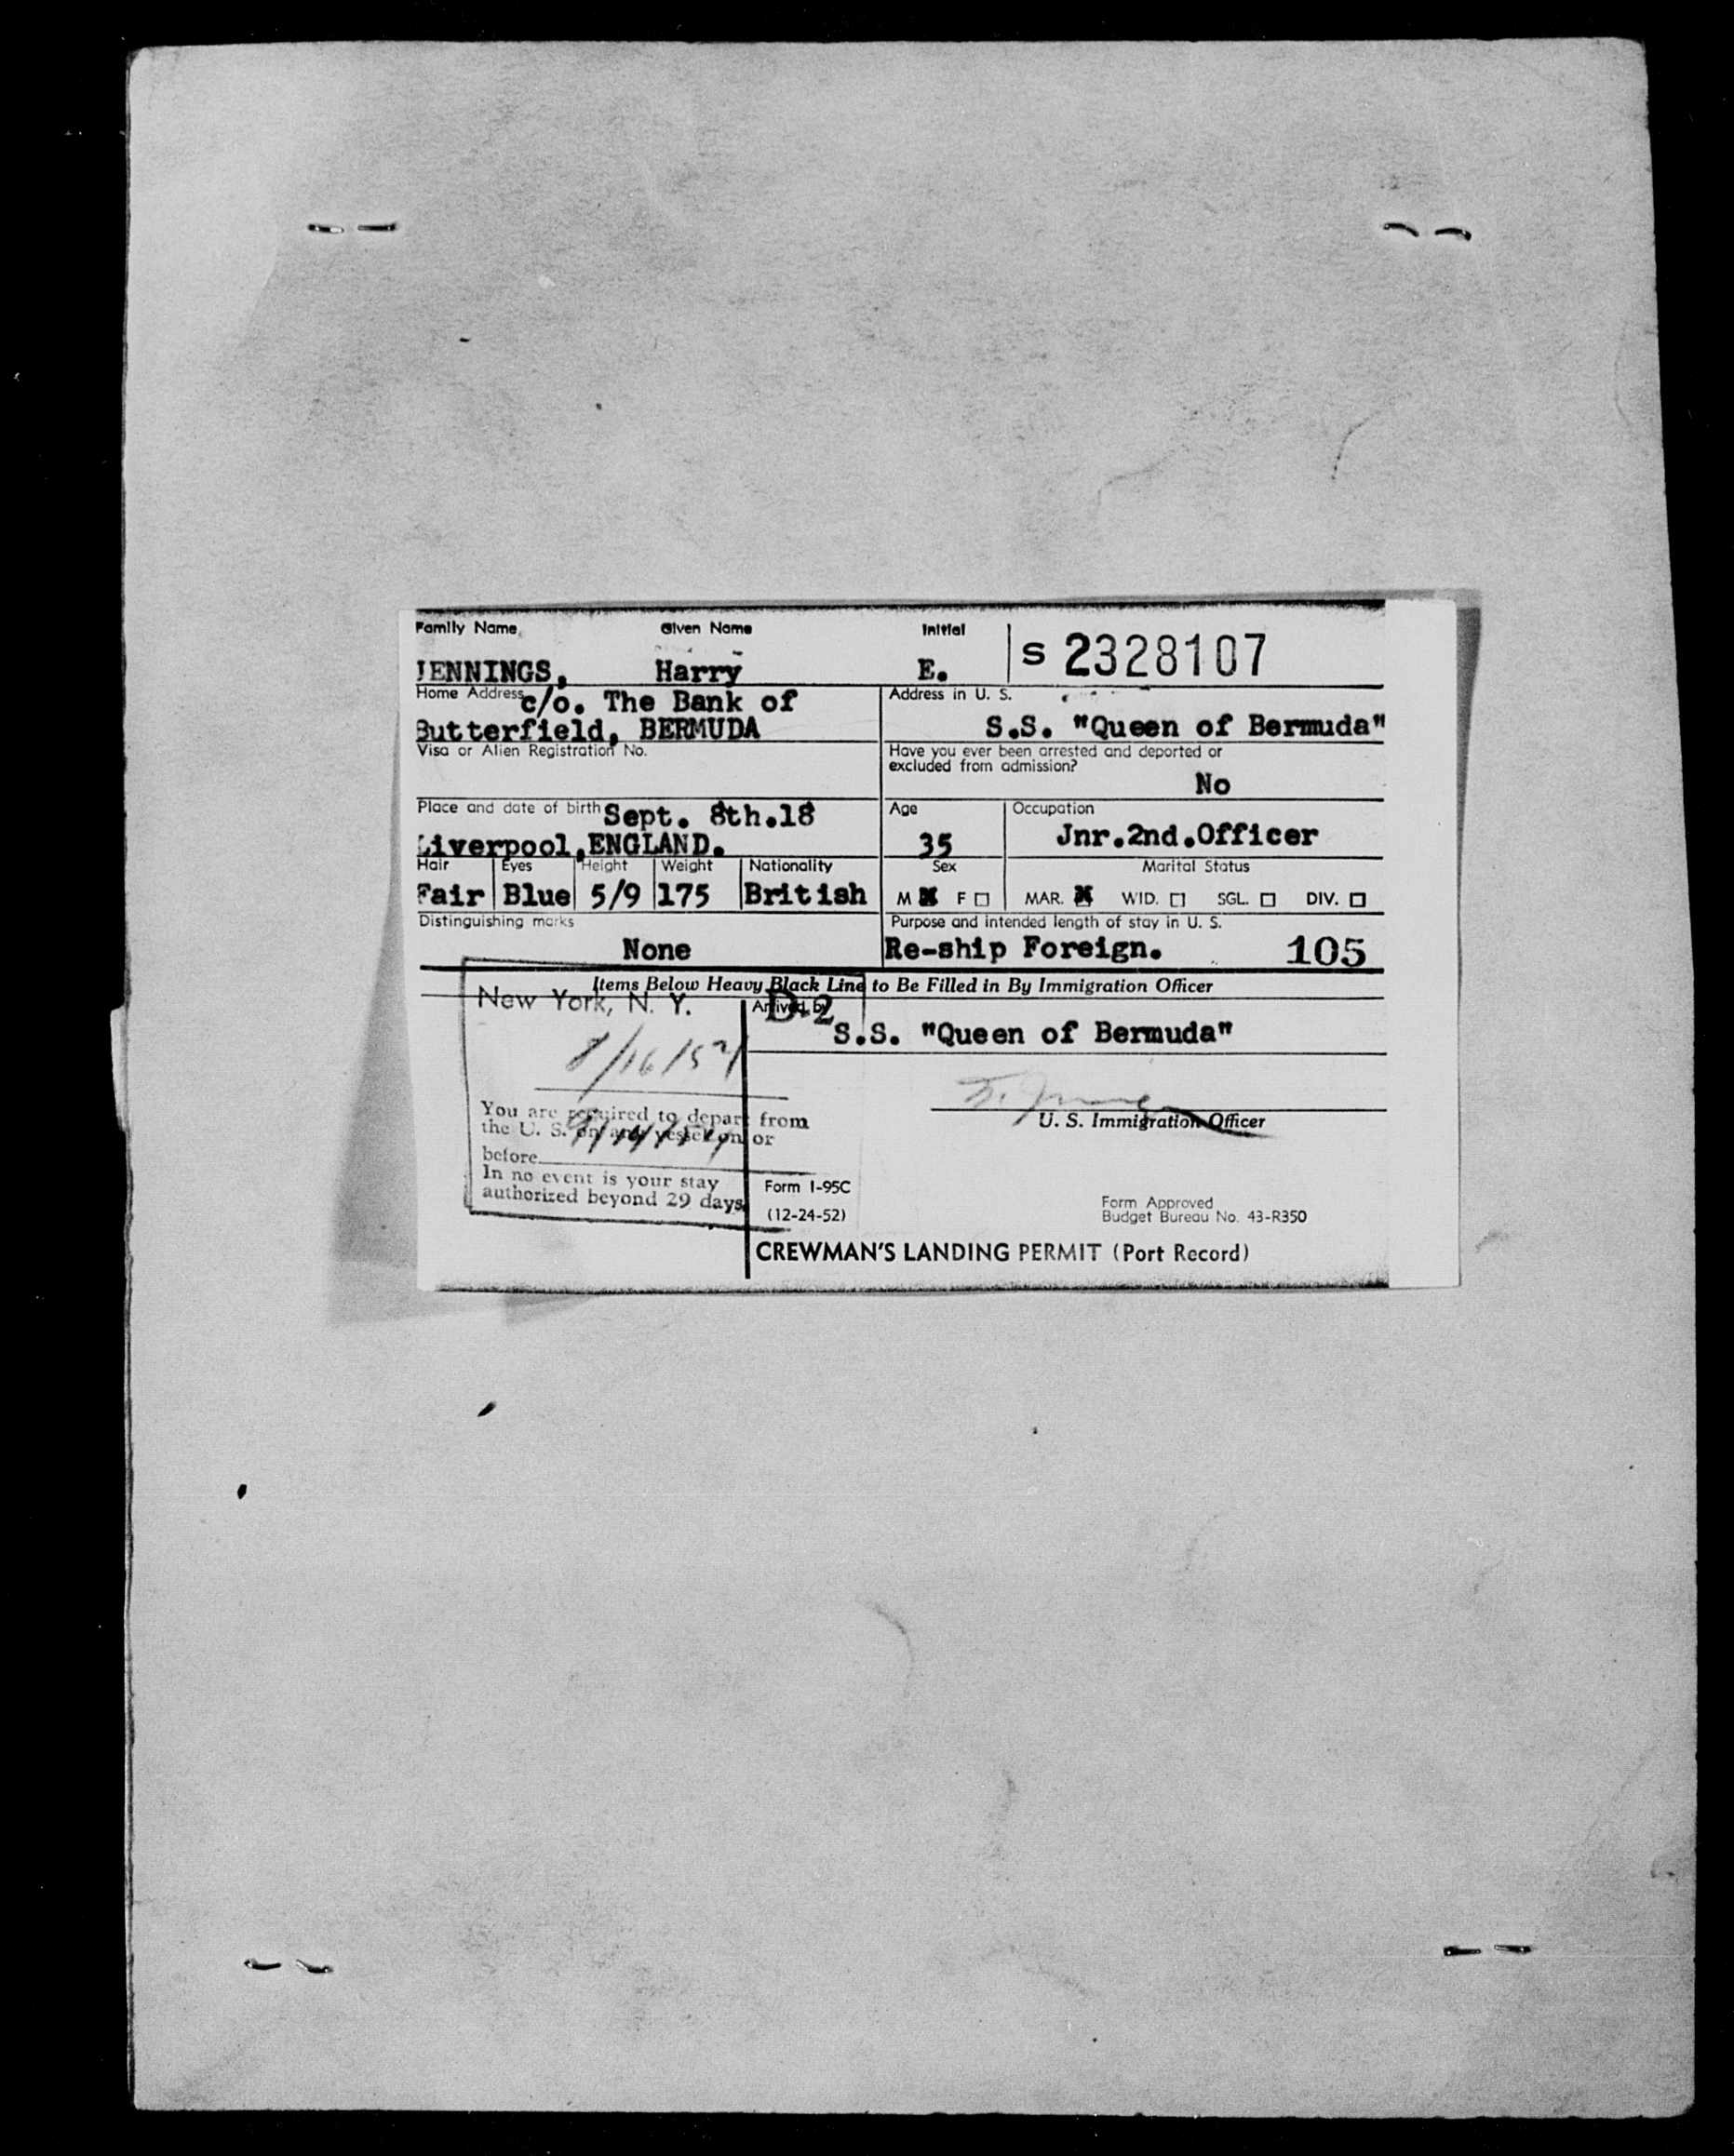 Family Name Given Name Initial
JENNINGS, Harry E. S 2328107
Home Address c/o. The Bank of
Butterfield, BERMUDA
Address in U. S.
S.S. "Queen of Bermuda"
Visa or Alien Registration No.
Have you ever been arrested and deported or
excluded from admission?
No
Place and date of birth Sept. 8th.18
Liverpool,ENGLAND.
Age
35
Occupation
Jnr.2nd.Officer
Hair Eyes Height Weight Nationality
Fair Blue 5/9 175 British
Sex
M F
Marital Status
MAR. WID. SGL. DIV.
Distinguishing marks
None
Purpose and intended length of stay in U. S.
Re-ship Foreign. 105
Items Below Heavy Black Line to Be Filled in By Immigration Officer
New York, N. Y.
D-2
Arrived by
S.S. "Queen of Bermuda"
8/16/54
You are required to depart from
the U. S. on any vessel on or
before
9/14/54
In no event is your stay
authorized beyond 29 days.
U. S. Immigration Officer
Form I-95C
(12-24-52)
Form Approved
Budget Bureau No. 43-R350
CREWMAN'S LANDING PERMIT (Port Record)